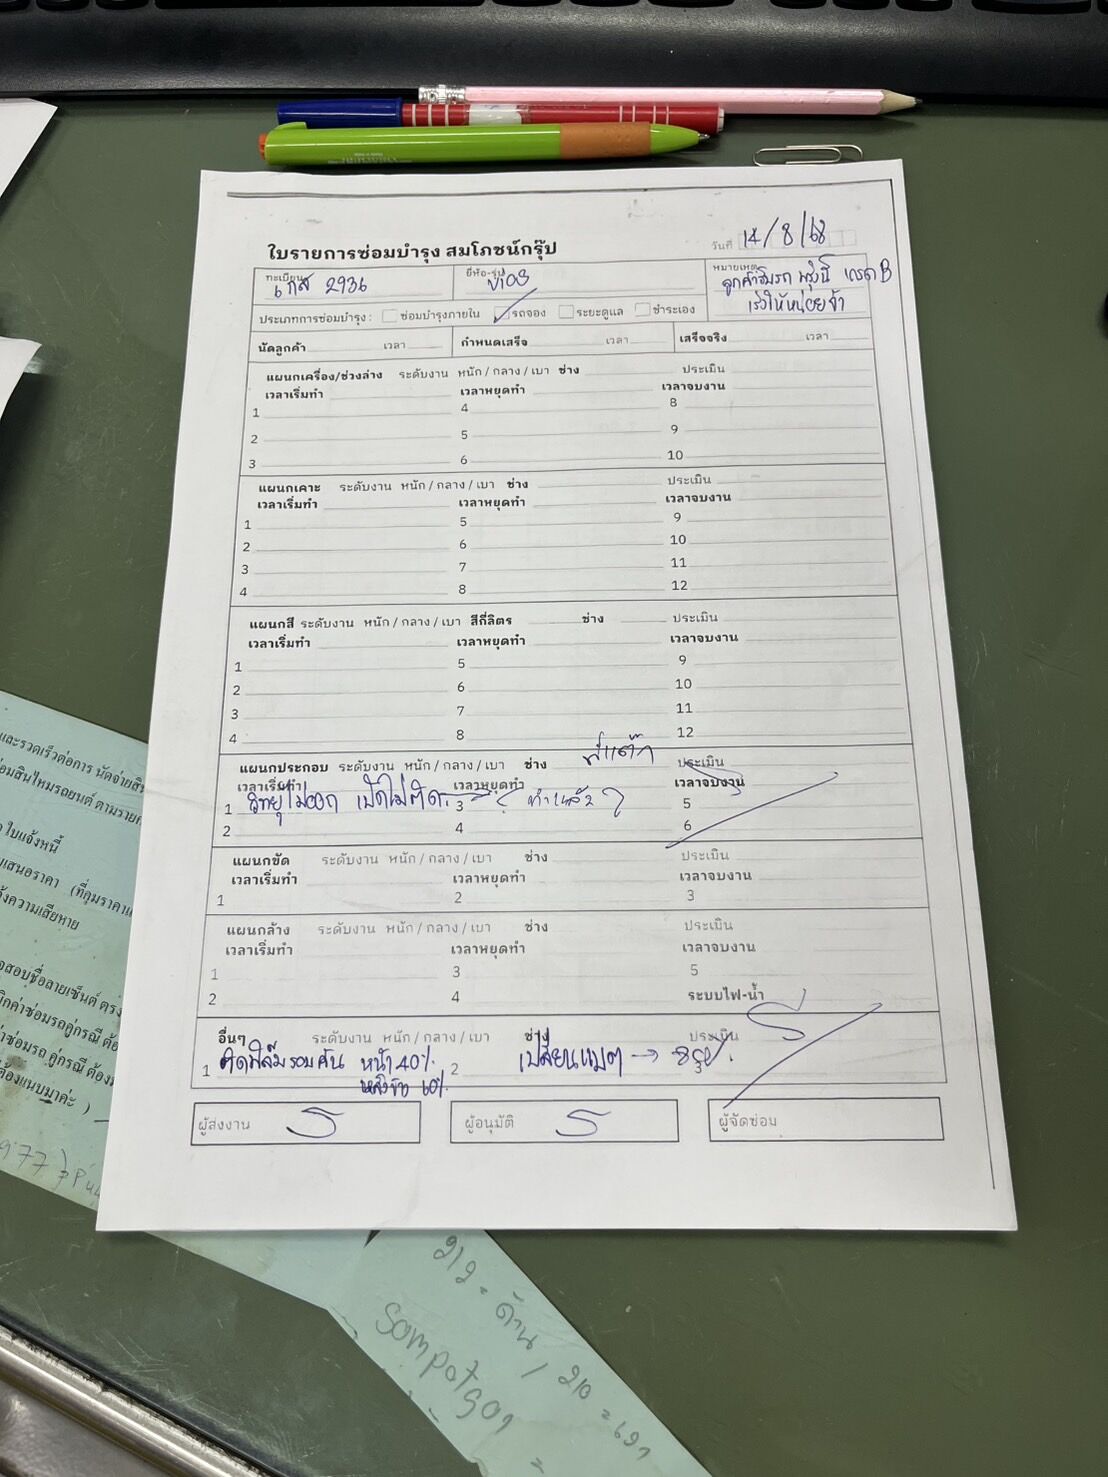 ใบรายการซ่อมบำรุง สมโภชน์กรุ๊ป
วันที่ 14/8/68
ทะเบียน 6 กส 2936
ยี่ห้อ-รุ่น VIOS
หมายเหตุ ลูกค้ารับรถ พรุ่งนี้ เกรด B
เร่งให้หน่อยจ้า
ประเภทการซ่อมบำรุง : ซ่อมบำรุงภายใน รถจอง ระยะดูแล ชำระเอง
นัดลูกค้า เวลา กำหนดเสร็จ เวลา เสร็จจริง เวลา
แผนกเครื่อง/ช่วงล่าง ระดับงาน หนัก / กลาง / เบา ช่าง ประเมิน
เวลาเริ่มทำ เวลาหยุดทำ เวลาจบงาน
1 4 8
2 5 9
3 6 10
แผนกเคาะ ระดับงาน หนัก / กลาง / เบา ช่าง ประเมิน
เวลาเริ่มทำ เวลาหยุดทำ เวลาจบงาน
1 5 9
2 6 10
3 7 11
4 8 12
แผนกสี ระดับงาน หนัก / กลาง / เบา สีกี่ลิตร ช่าง ประเมิน
เวลาเริ่มทำ เวลาหยุดทำ เวลาจบงาน
1 5 9
2 6 10
3 7 11
4 8 12
แผนกประกอบ ระดับงาน หนัก / กลาง / เบา ช่าง ประเมิน
เวลาเริ่มทำ เวลาหยุดทำ เวลาจบงาน
1 วิทยุไม่ออก เปิดไม่ติด → ( ทำแล้ว ) 3 5
2 4 6
แผนกขัด ระดับงาน หนัก / กลาง / เบา ช่าง ประเมิน
เวลาเริ่มทำ เวลาหยุดทำ เวลาจบงาน
1 2 3
แผนกล้าง ระดับงาน หนัก / กลาง / เบา ช่าง ประเมิน
เวลาเริ่มทำ เวลาหยุดทำ เวลาจบงาน
1 3 5
2 4 ระบบไฟ-น้ำ
อื่นๆ ระดับงาน หนัก / กลาง / เบา ช่าง ประเมิน
1 ติดฟิล์มรอบคัน หน้า 40% 2 เปลี่ยนแบต → 3
60%
ผู้ส่งงาน ผู้อนุมัติ ผู้จัดซ่อม
และรวดเร็วต่อการ นัดจ่ายสิน
ซ่อมสินไหมรถยนต์ ตามราย
ใบแจ้งหนี้
เสนอราคา (ที่คุมราคา
ความเสียหาย
สอบชื่อลายเซ็นต์ ตรง
ค่าซ่อมรถคู่กรณี ต้อ
ค่าซ่อมรถ คู่กรณี ต้อง
ต้องแนบมาค่ะ )
977
212 = ด้าน / 210 =
Sompotgo1